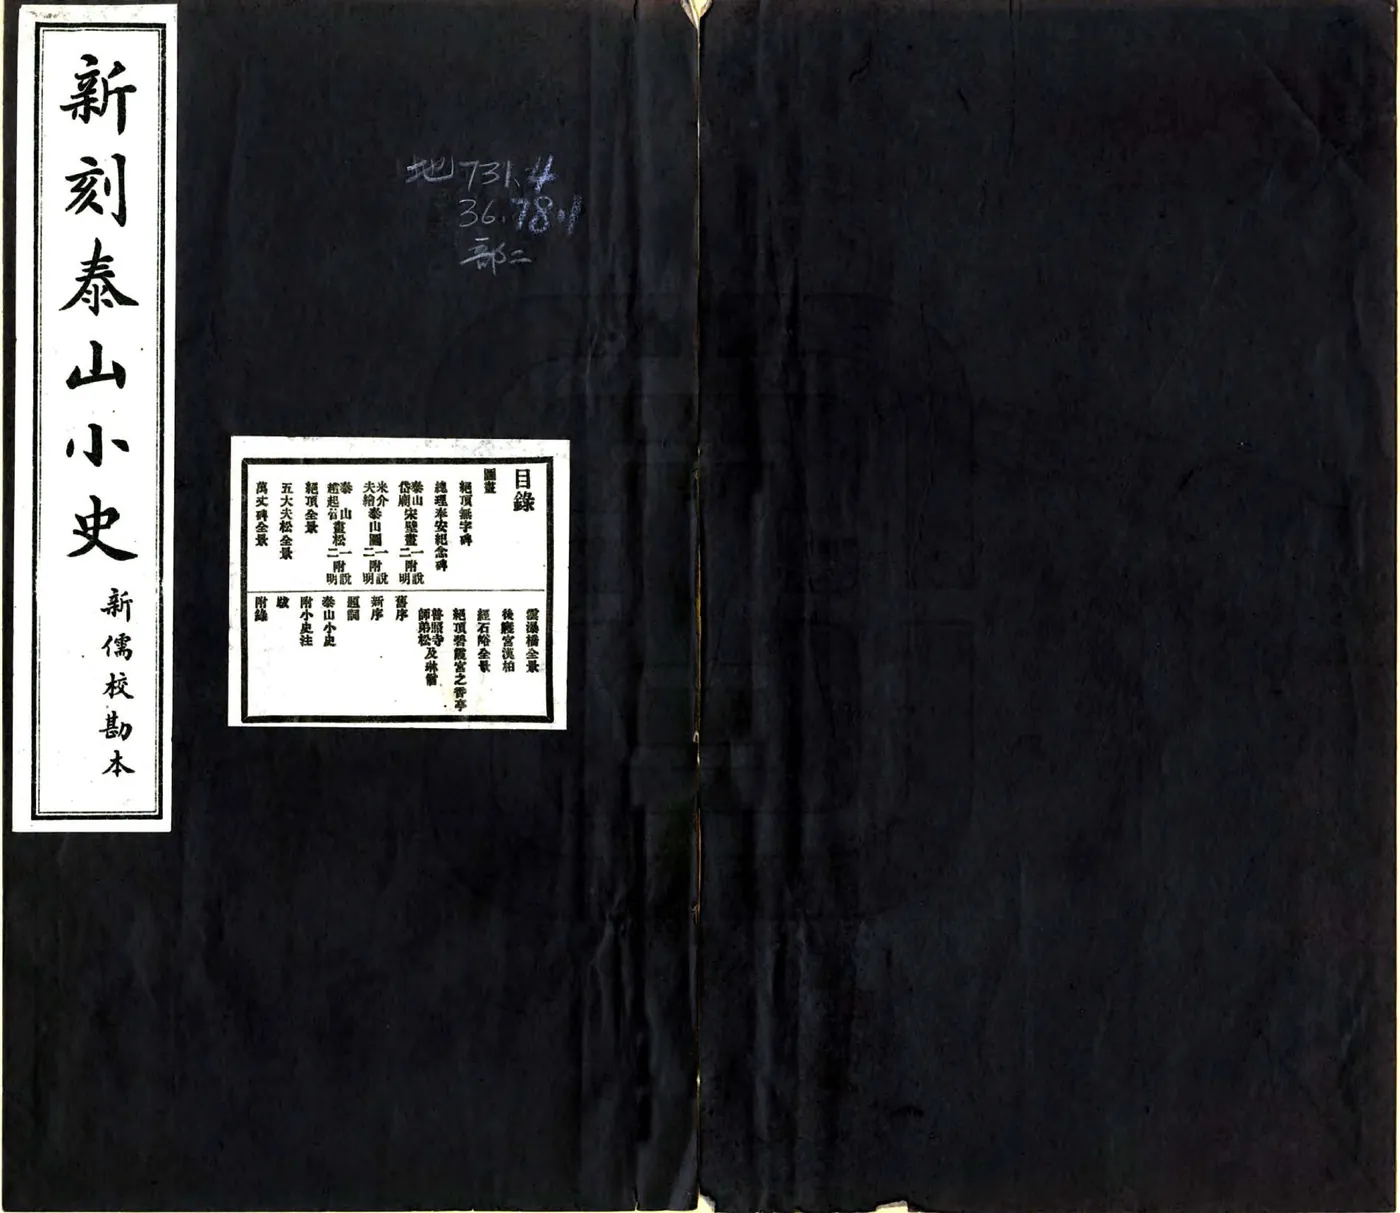 新刻泰山小史
新儒校勘本
地731.4
36.78.1
部二
目錄
圖畫
絕頂無字碑
總理奉安紀念碑
泰山宋壁畫一附說
岱廟 二明
米介泰山圖一附說
夫繪 二明
泰山畫松一附說
絕頂全景
五大夫松全景
萬丈碑全景
雲瀑橋全景
後麓宮漢柏
經石峪全景
絕頂碧霞宮之香亭
普照寺
師弟松及琳僧
舊序
新序
題詞
泰山小史
附小史注
跋
附錄